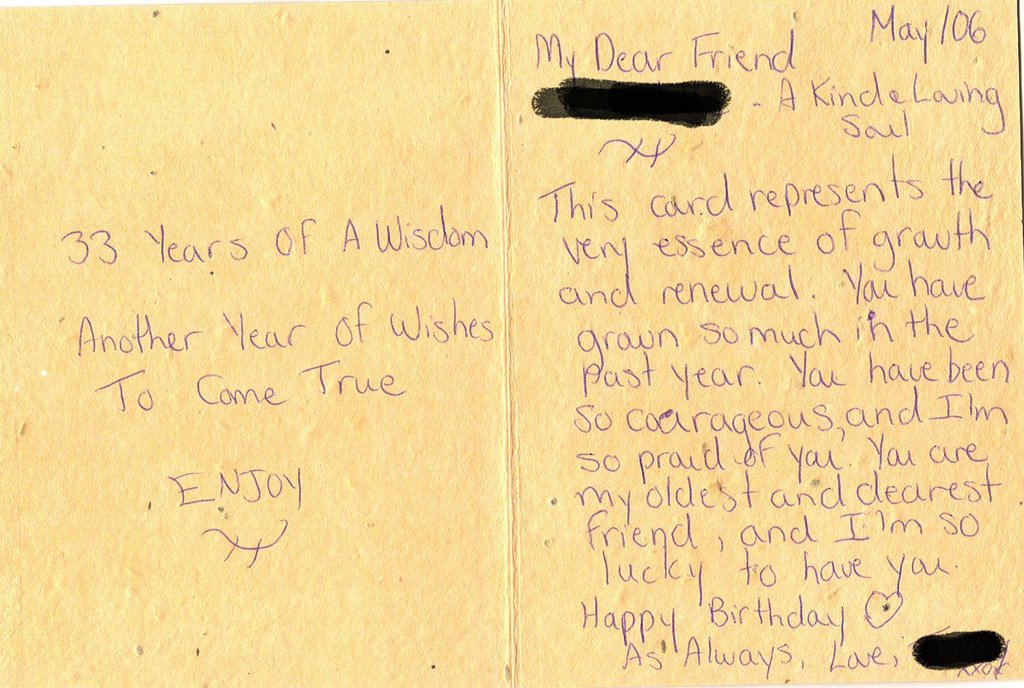 33 Years Of A Wisdom
Another Year of Wishes
To Come True
ENJOY
May/06
My Dear Friend
- A Kind & Loving
Soul
This card represents the
very essence of growth
and renewal. You have
grown so much in the
past year. You have been
so courageous, and I'm
so proud of you. You are
my oldest and dearest
friend, and I'm so
lucky to have you.
Happy Birthday ♡
As Always, Love,